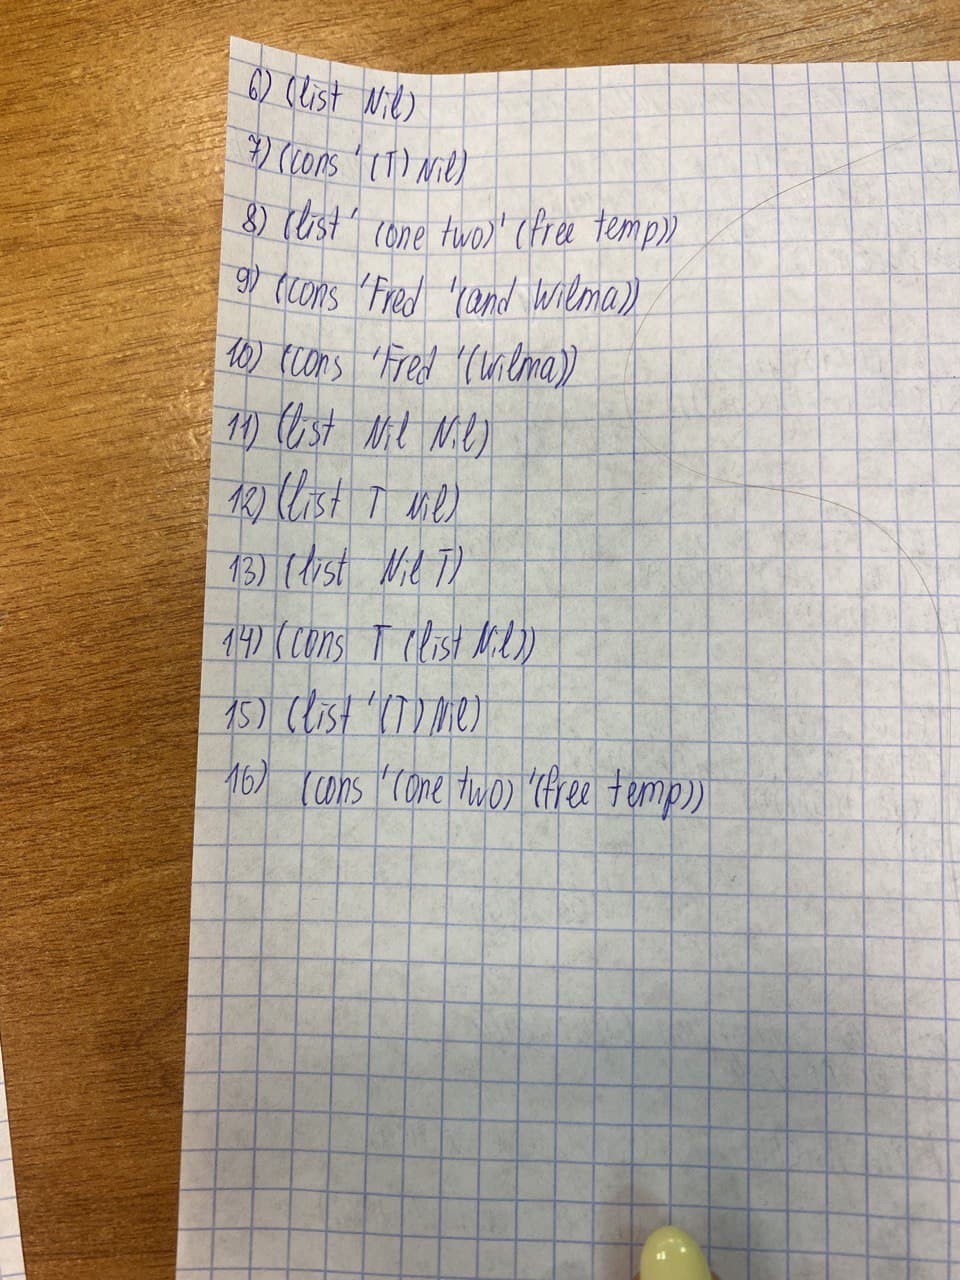 6) (list Nil)
7) (cons '(T) Nil)
8) (list' (one two)' (free temp))
9) (cons 'Fred '(and Wilma))
10) (cons 'Fred '(Wilma))
11) (list Nil Nil)
12) (list T Nil)
13) (list Nil T)
14) (cons T (list Nil))
15) (list '(T) Nil)
16) (cons '(one two) '(free temp))